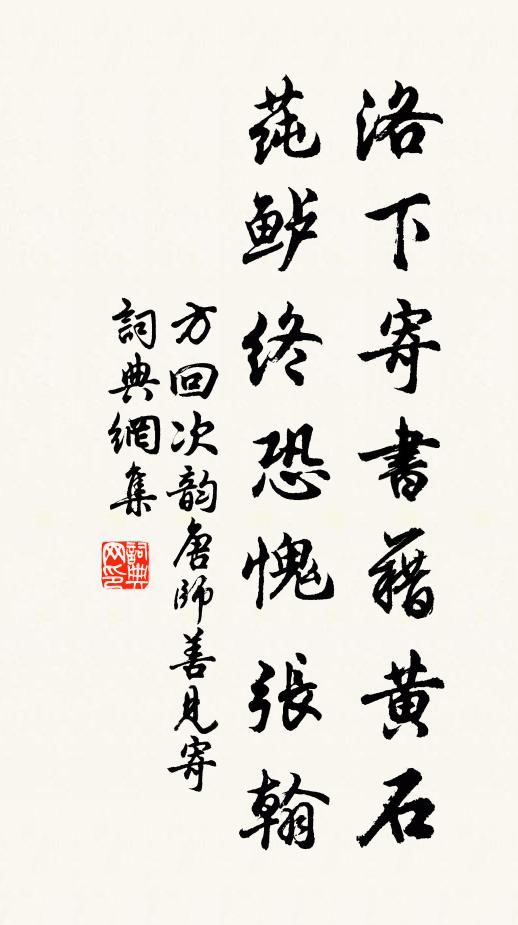 洛下寄書藉黄石
莼鲈终恐愧張翰
方回次韵唐師善見寄
詞典網集
詞典网印